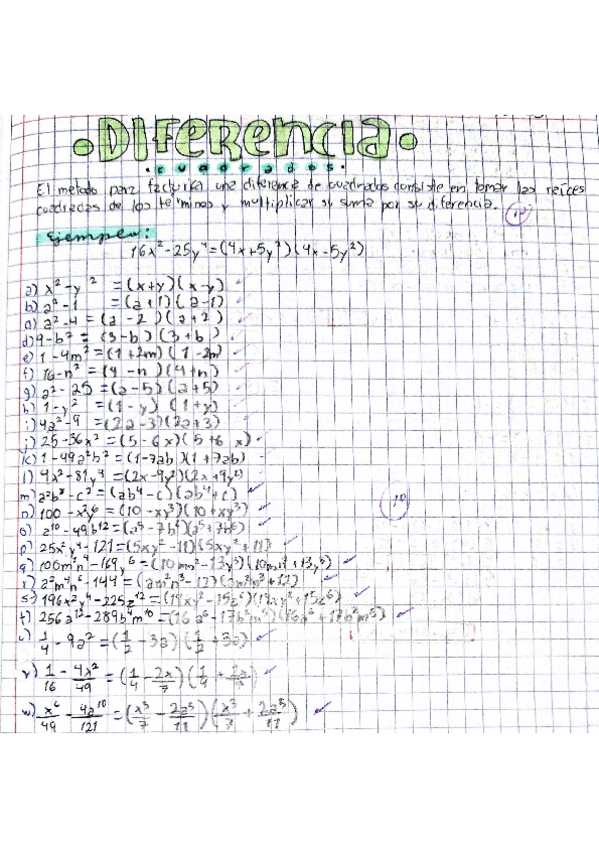 DIFERENCIA
cuadrados
El metodo para factorisa una diferencia de cuadrados consiste en tomar las reices
cuadradas de los terminos y multiplicar su suma por su diferencia.
Ejemplo:
16x²-25y⁴=(4x+5y²)(4x-5y²)
a) x²-y² =(x+y)(x-y)
b) a²-1 =(a+1)(a-1)
a²-4=(a-2)(a+2)
d) 9-b²= (3-b)(3+b)
e) 1-4m²=(1+2m)(1-2m)
f) 16-n²=(4-n)(4+n)
g) a²-25=(a-5)(a+5)
h) 1-y² =(1-y)(1+y)
i) 4a²-9 =(2a-3)(2a+3)
j) 25-36x²=(5-6x)(5+6x)
k) 1-49a²b²=(1-7ab)(1+7ab)
l) 4x²-81y⁴=(2x-9y²)(2x+9y²)
m) a²b⁸-c²=(ab⁴-c)(ab⁴+c)
n) 100-x²y⁶=(10-xy³)(10+xy³)
o) a¹⁰-49b¹²=(a⁵-7b⁶)(a⁵+7b⁶)
p) 25x²y⁴-121=(5xy²-11)(5xy²+11)
q) 100m²n⁴-169y⁶=(10mn²-13y³)(10mn²+13y³)
r) a²m⁴n⁶-144=(am²n³-12)(am²n³+12)
s) 196x²y⁴-225z¹²=(14xy²-15z⁶)(14xy²+15z⁶)
t) 256a¹²-289b⁴m¹⁰=(16a⁶-17b²m⁵)(16a⁶+17b²m⁵)
1/4-9a²=(1/2-3a)(1/2+3a)
v) 1/16-4x²/49=(1/4-2x/7)(1/4+2x/7)
w) x⁶/49-4a¹⁰/121=(x³/7-2a⁵/11)(x³/7+2a⁵/11)